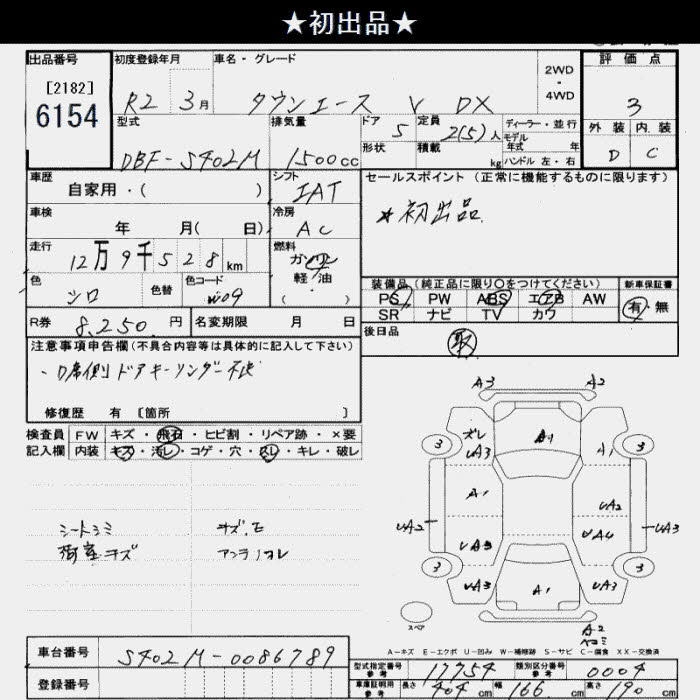 ★初出品★
出品番号 初度登録年月 車名・グレード 2WD・4WD 評価点
[2182]
6154
R2 3月 タウンエース V DX 3
型式 排気量 ドア 5 定員 2(5)人 ディーラー・並行 外装 内装
モデル年式 年
DBF-S402M 1500cc 形状 積載 kg ハンドル 左・右 D C
車歴 自家用・( ) シフト IAT セールスポイント (正常に機能するものに限ります)
車検 年 月( 日) 冷房 AC ★初出品
走行 12万9千528km 燃料 ガソリン 軽・油 ( ・ )
色 シロ 色替 色コード W09
装備品 (純正品に限り○をつけてください) 新車保証書
PS PW ABS エアB AW 有・無
SR ナビ TV カワ
R券 8,250円 名変期限 月 日 後日品 取
注意事項申告欄(不具合内容等は具体的に記入して下さい)
ドアキーシリンダー不良
修復歴 有 [箇所 ]
検査員 FW キズ・飛石・ヒビ割・リペア跡・×要
記入欄 内装 キズ・汚レ・コゲ・穴・スレ・キレ・破レ
A3 A2
ズレ A1
3 UA3 A1 3
A1 UA2
UA2 UA3
UA3 UA4
3 3
UA3 A1 UA3
シートシミ キズ.モ
荷室キズ
A2
スペア
A-キズ E-エクボ U-凹み W-補修跡 S-サビ C-腐食 XX-交換済
車台番号 S402M-0086789
登録番号
型式指定番号 参考 17754 類別区分番号 参考 0004
車庫証明用 参考 長さ 404cm 幅 166cm 高さ 190cm